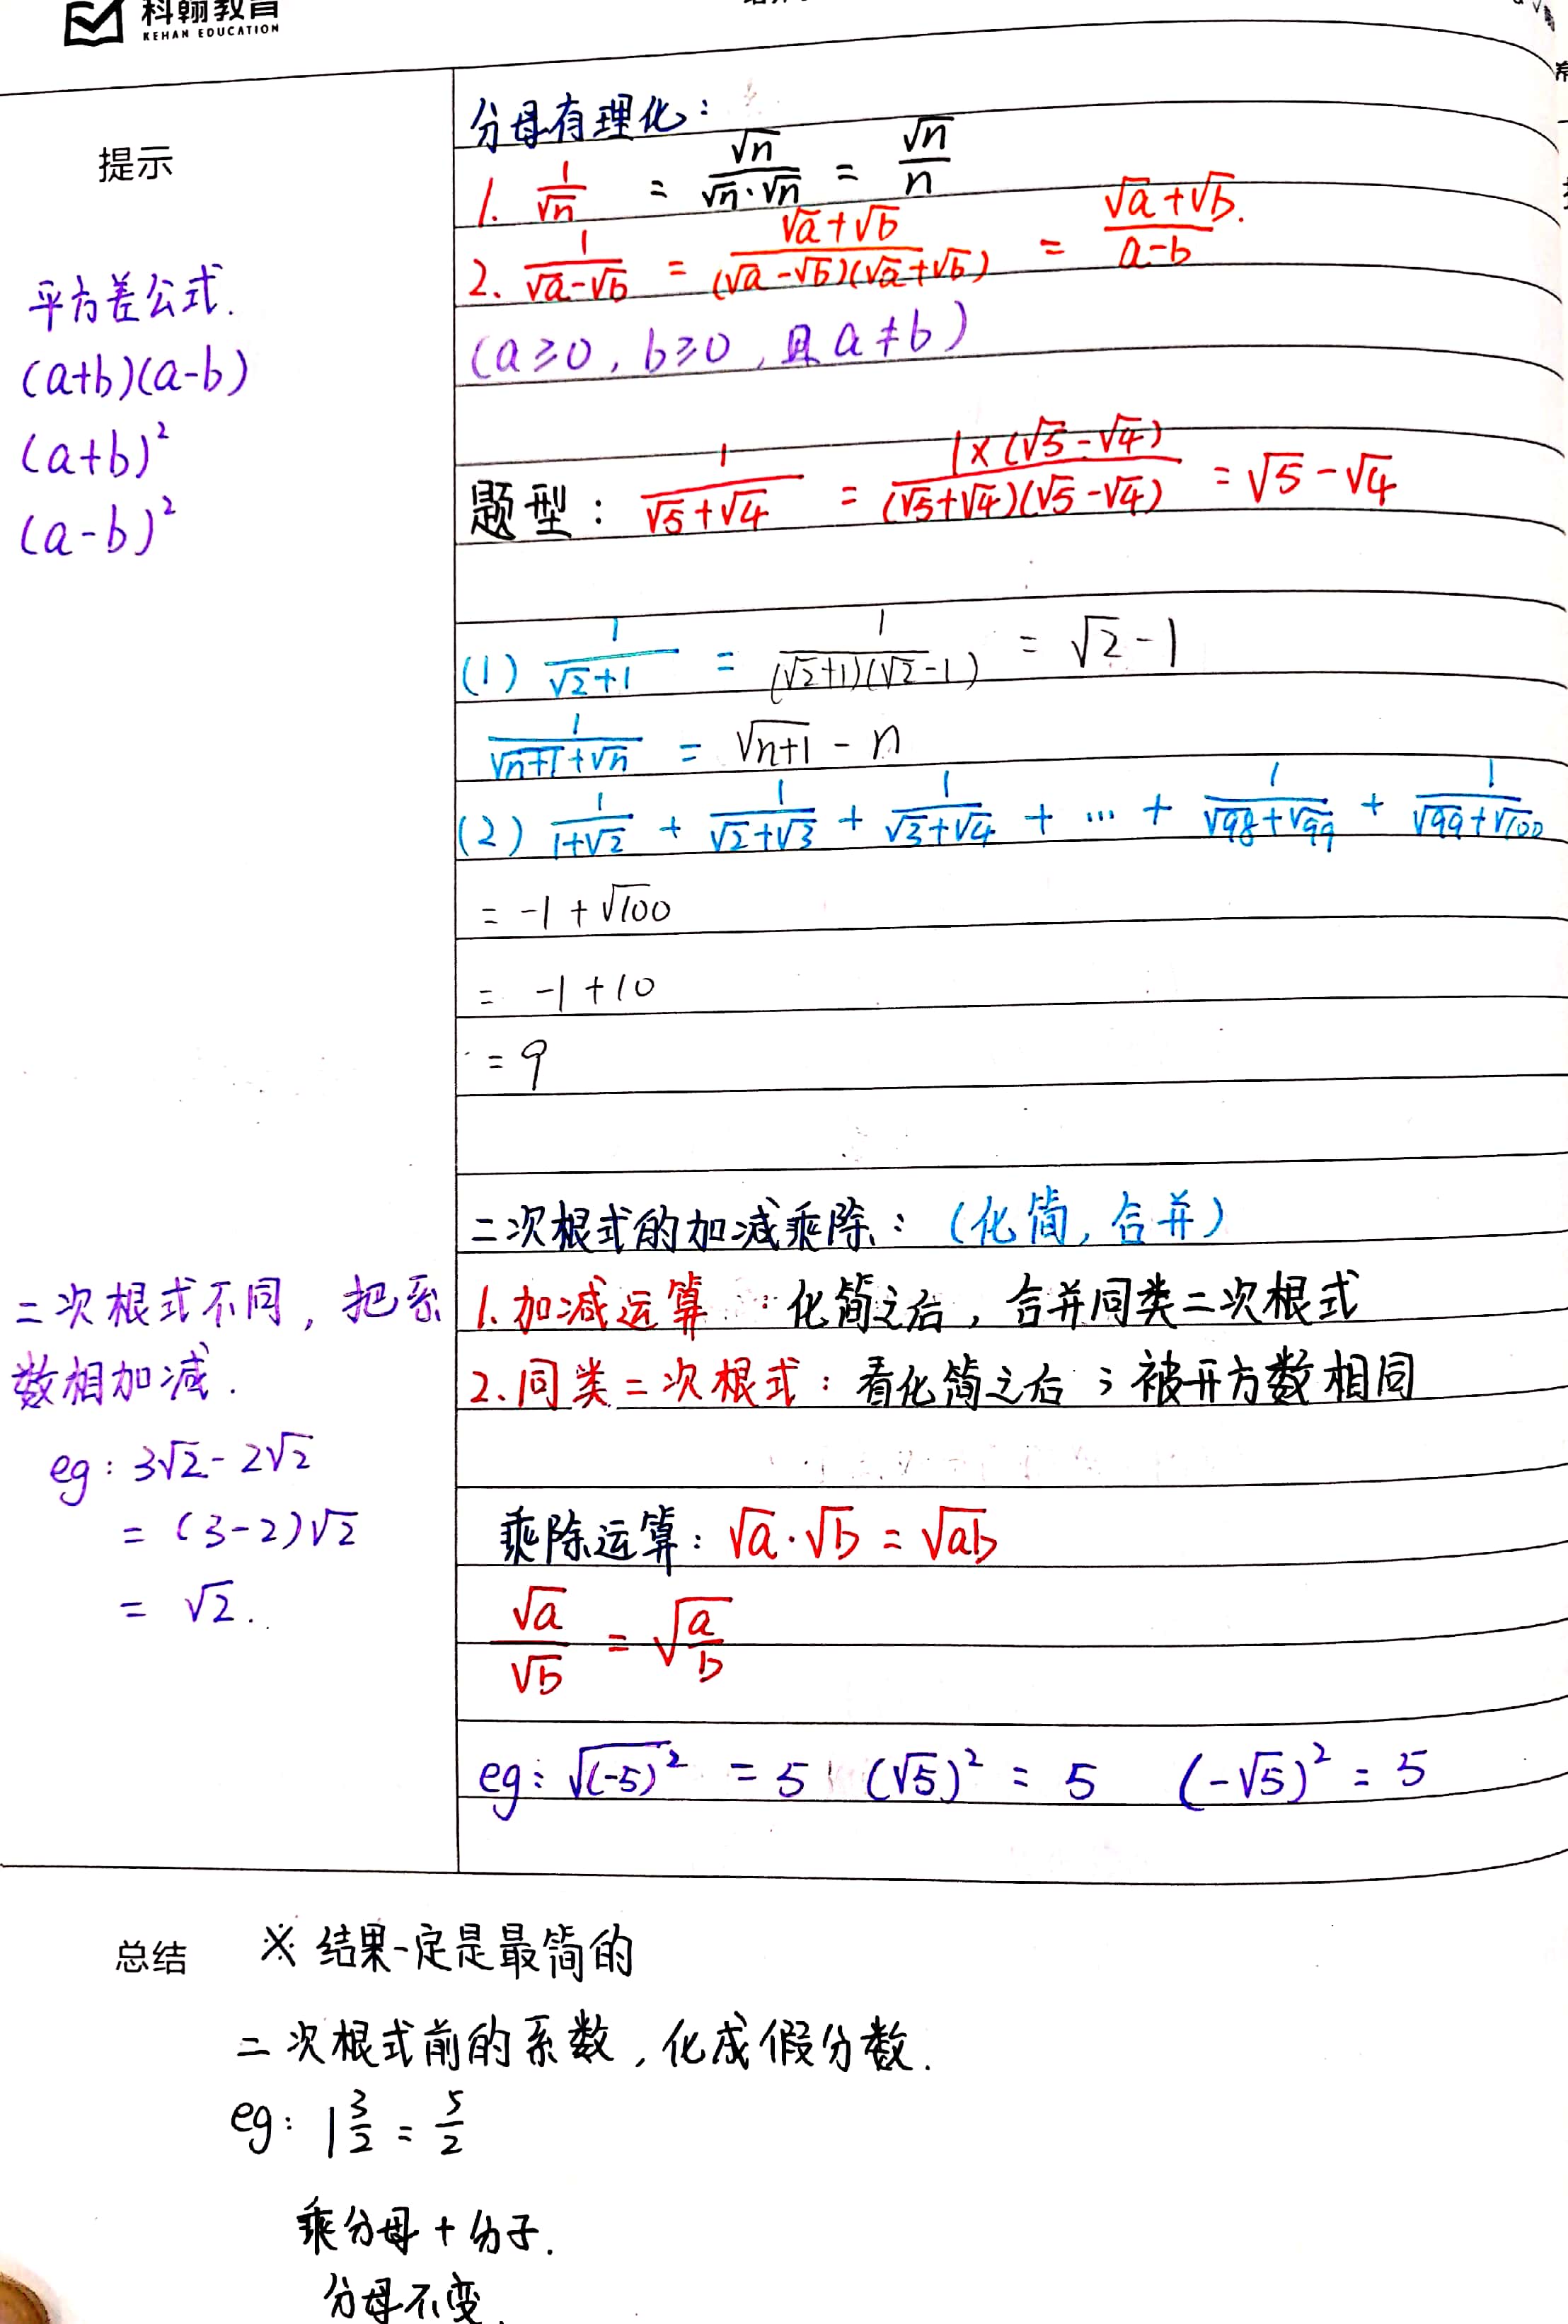 科翰教育
KEHAN EDUCATION
提示
平方差公式.
(a+b)(a-b)
(a+b)²
(a-b)²
分母有理化：
1. 1/√n = √n/(√n·√n) = √n/n
2. 1/(√a-√b) = (√a+√b)/((√a-√b)(√a+√b)) = (√a+√b)/(a-b).
(a≥0, b≥0, 且a≠b)
题型：1/(√5+√4) = 1×(√5-√4)/((√5+√4)(√5-√4)) = √5-√4
(1) 1/(√2+1) = 1/((√2+1)(√2-1)) = √2-1
1/(√(n+1)+√n) = √(n+1) - n
(2) 1/(1+√2) + 1/(√2+√3) + 1/(√3+√4) + … + 1/(√98+√99) + 1/(√99+√100)
= -1+√100
= -1+10
= 9
二次根式的加减乘除：(化简, 合并)
1.加减运算：化简之后，合并同类二次根式
2.同类二次根式：看化简之后；被开方数相同
二次根式不同，把系
数相加减.
eg：3√2-2√2
=(3-2)√2
= √2.
乘除运算：√a·√b=√(ab)
√a/√b = √(a/b)
eg：√((-5)²) = 5 (√5)² = 5 (-√5)² = 5
总结
※ 结果一定是最简的
二次根式前的系数，化成假分数.
eg：1 3/2 = 5/2
乘分母+分子.
分母不变.